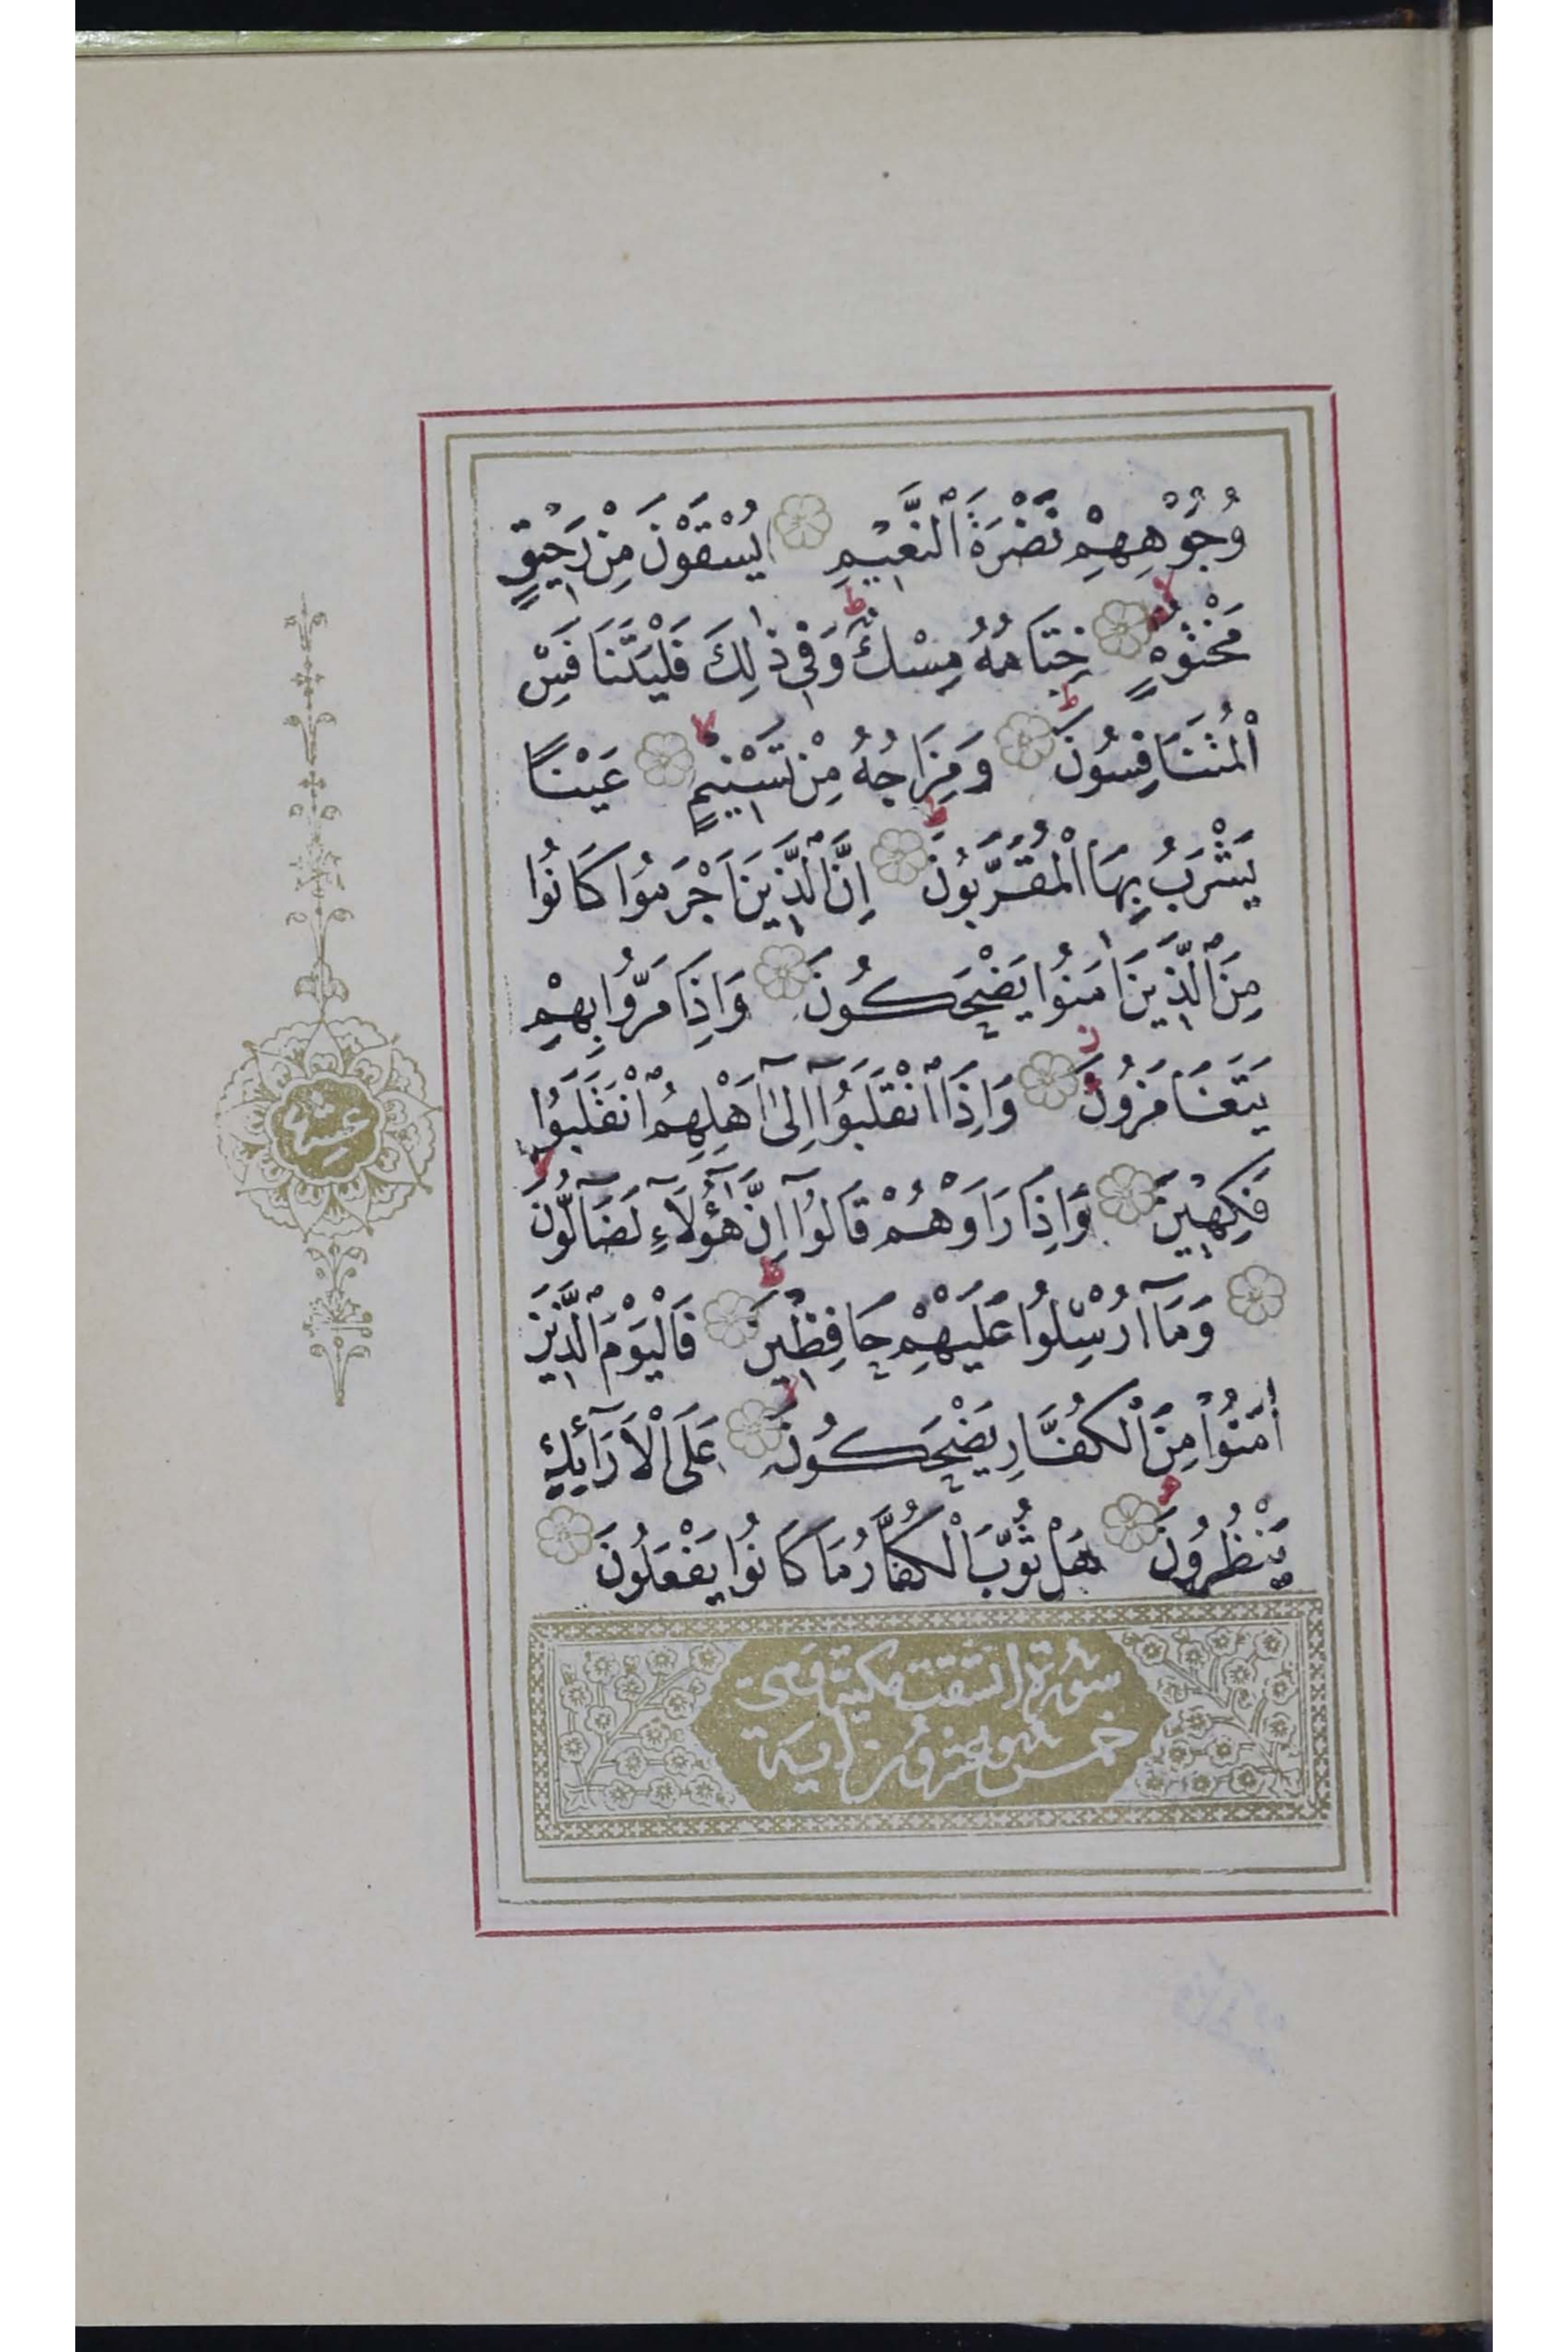 وُجُوْهِهِمْ نَضْرَةَ ٱلنَّعِيْمِ يُسْقَوْنَ مِنْ رَحِيْقٍ
مَخْتُوْمٍ خِتَامُهُ مِسْكٌ وَفِي ذٰلِكَ فَلْيَتَنَافَسِ
ٱلْمُتَنَافِسُونَ وَمِزَاجُهُ مِنْ تَسْنِيْمٍ عَيْنًا
يَشْرَبُ بِهَا ٱلْمُقَرَّبُونَ إِنَّ ٱلَّذِينَ اَجْرَمُوا كَانُوا
مِنَ ٱلَّذِينَ اٰمَنُوا يَضْحَكُونَ وَاِذَا مَرُّوا بِهِمْ
يَتَغَامَزُونَ وَاِذَا ٱنْقَلَبُوٓا اِلٰٓى اَهْلِهِمُ ٱنْقَلَبُوا
فَكِهِيْنَ وَاِذَا رَاَوْهُمْ قَالُوٓا اِنَّ هٰٓؤُلَآءِ لَضَآلُّونَ
وَمَآ اُرْسِلُوا عَلَيْهِمْ حَافِظِيْنَ فَالْيَوْمَ ٱلَّذِينَ
اٰمَنُوْا مِنَ ٱلْكُفَّارِ يَضْحَكُونَ عَلَى ٱلْاَرَآئِكِ
يَنْظُرُونَ هَلْ ثُوِّبَ ٱلْكُفَّارُ مَا كَانُوا يَفْعَلُونَ
سورة انشقت مكية وهى
خمس وعشرون اية